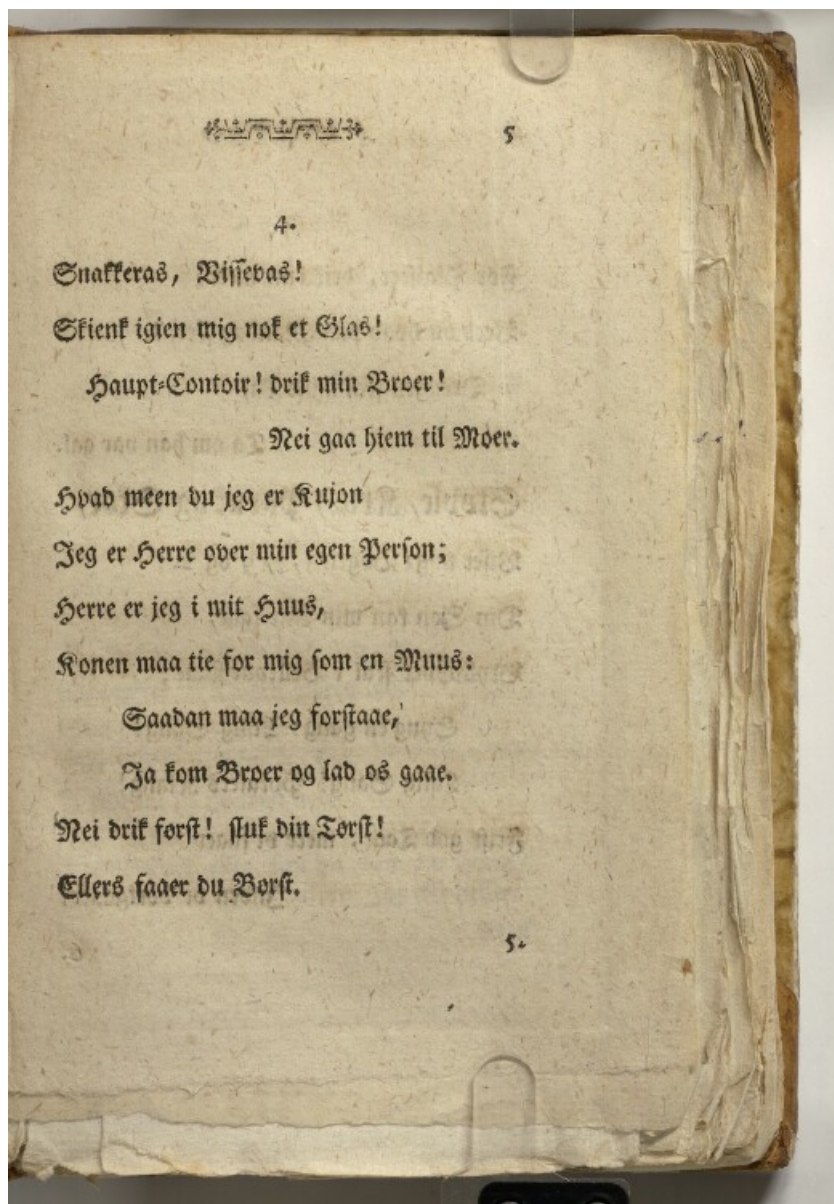 5
4.
Snakkeras, Vissevas!
Skienk igien mig nok et Glas!
Haupt-Contoir! drik min Broer!
Nei gaa hiem til Moer.
Hvad meen du jeg er Kujon
Jeg er Herre over min egen Person;
Herre er jeg i mit Huus,
Konen maa tie for mig som en Muus:
Saadan maa jeg forstaae,
Ja kom Broer og lad os gaae.
Nei drik først! sluk din Tørst!
Ellers faaer du Børst.
5.